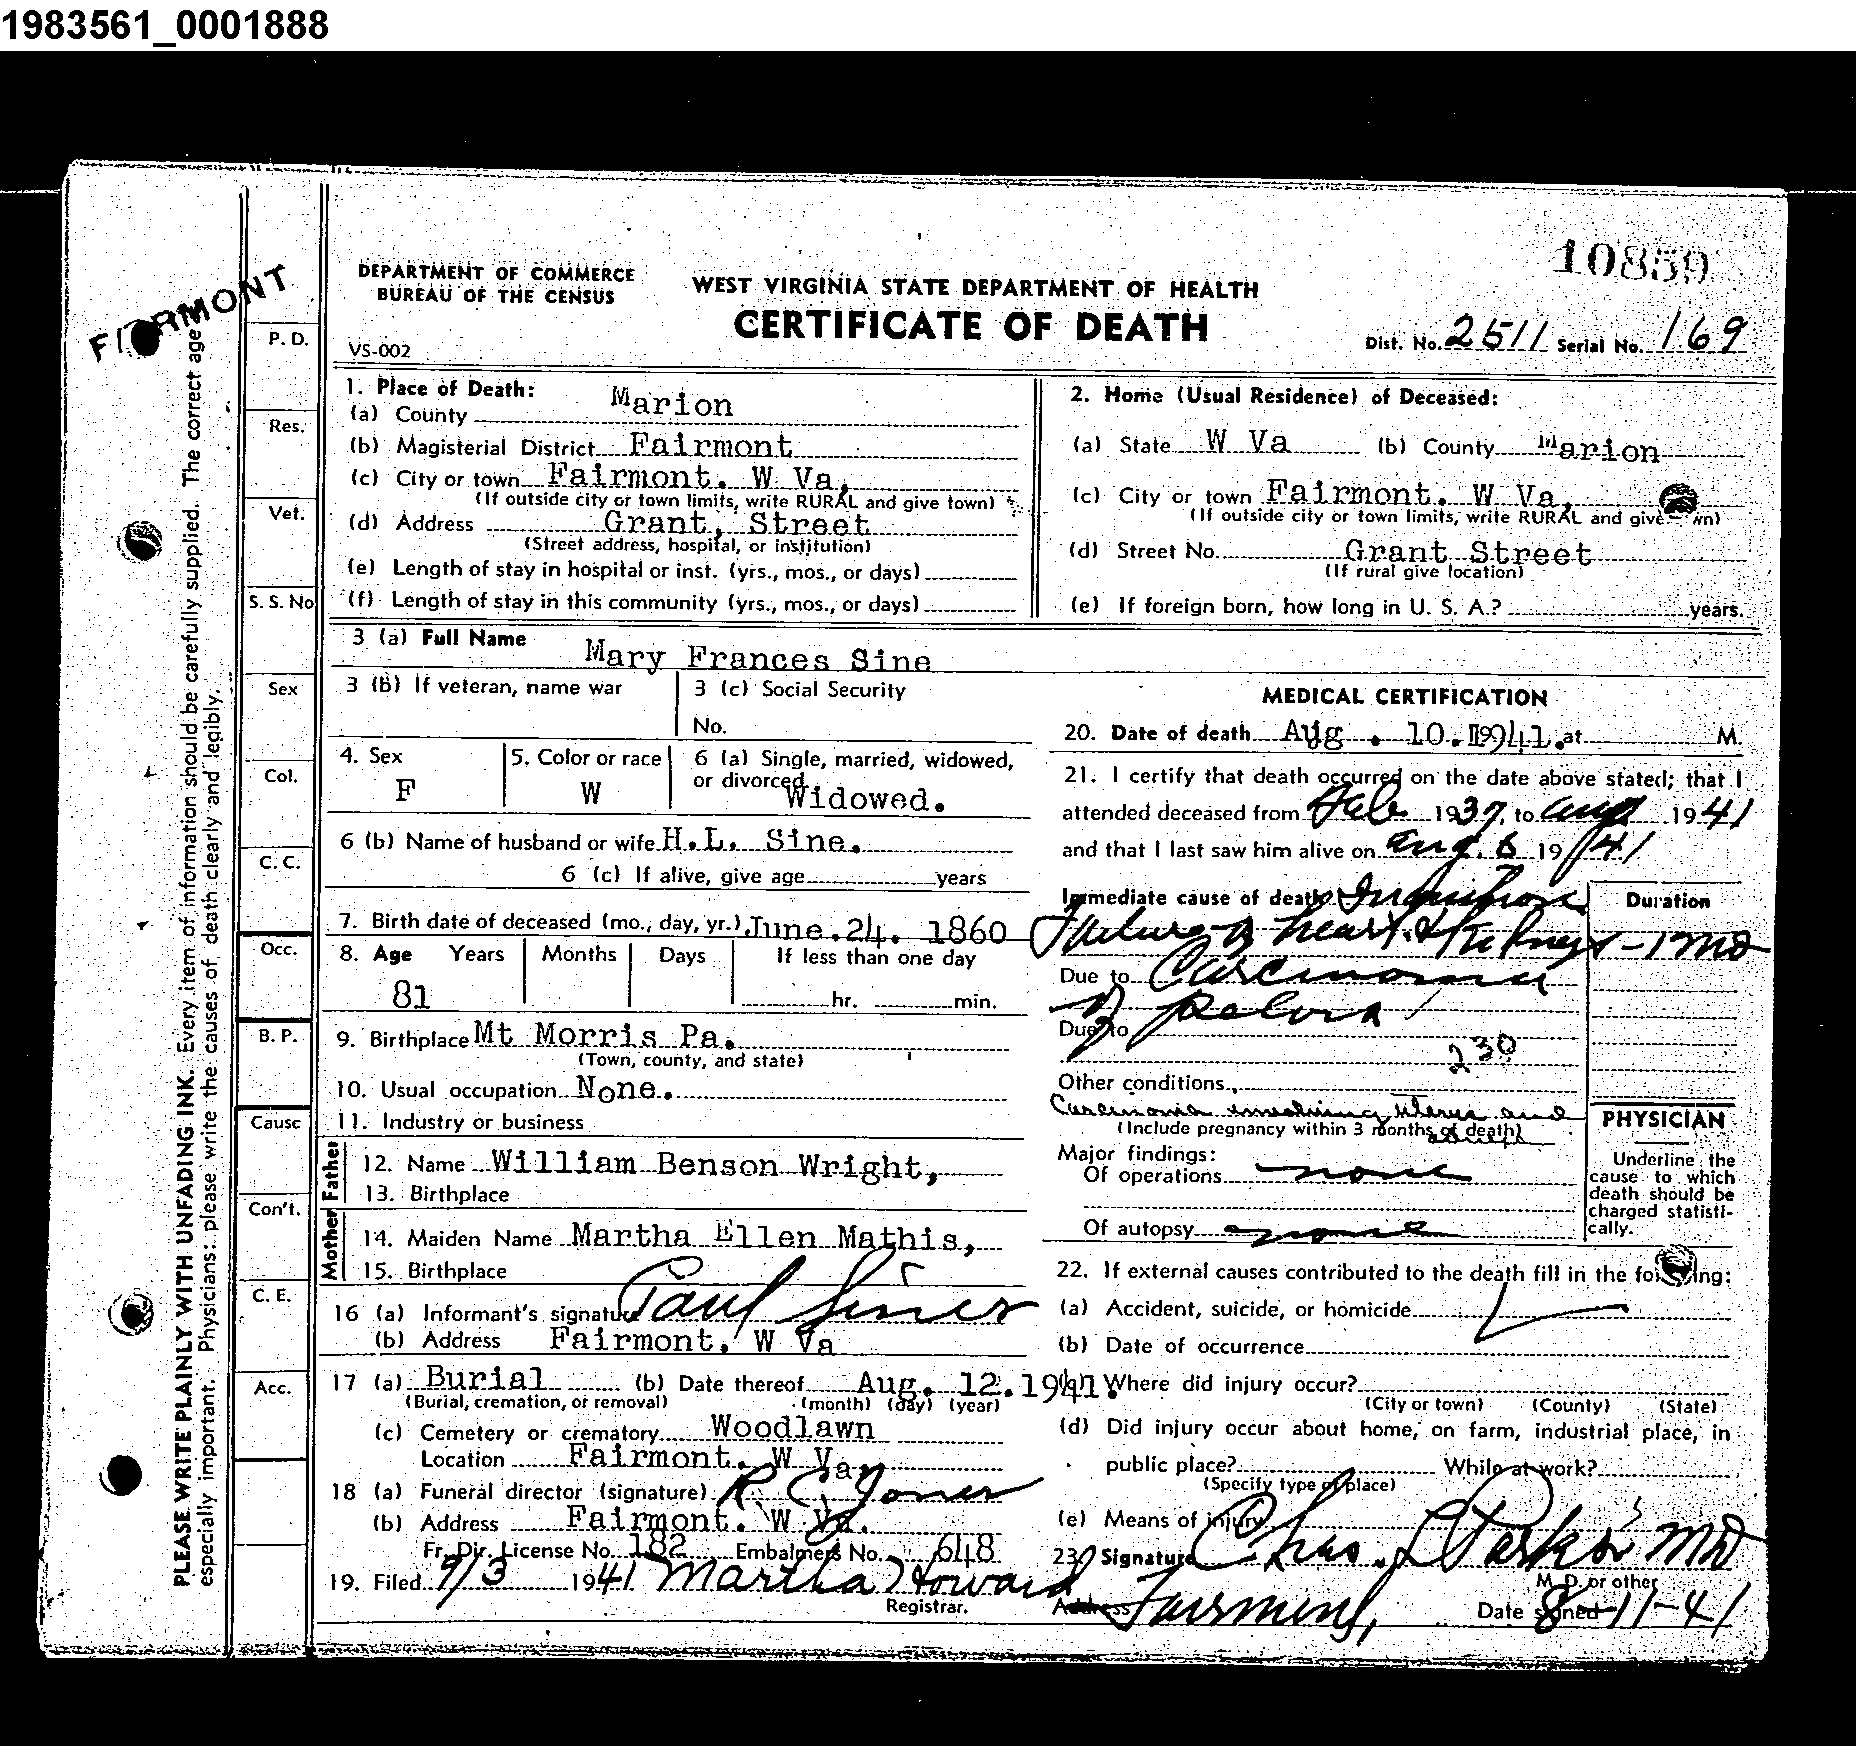 1983561_0001888
10859
FAIRMONT
DEPARTMENT OF COMMERCE
BUREAU OF THE CENSUS
WEST VIRGINIA STATE DEPARTMENT OF HEALTH
CERTIFICATE OF DEATH
VS-002
Dist. No. 2511 Serial No. 169
PLEASE WRITE PLAINLY WITH UNFADING INK. Every item of information should be carefully supplied. The correct age
especially important. Physicians: please write the causes of death clearly and legibly.
P. D.
Res.
Vet.
S. S. No
Sex
Col.
C. C.
Occ.
B. P.
Cause
Con't.
C. E.
Acc.
1. Place of Death:
(a) County Marion
(b) Magisterial District Fairmont
(c) City or town Fairmont. W Va,
(If outside city or town limits, write RURAL and give town)
(d) Address Grant, Street
(Street address, hospital, or institution)
(e) Length of stay in hospital or inst. (yrs., mos., or days)
(f) Length of stay in this community (yrs., mos., or days)
2. Home (Usual Residence) of Deceased:
(a) State W Va (b) County Marion
(c) City or town Fairmont. W Va,
(If outside city or town limits, write RURAL and give wn)
(d) Street No. Grant Street
(If rural give location)
(e) If foreign born, how long in U. S. A.? years.
3 (a) Full Name Mary Frances Sine
3 (b) If veteran, name war
3 (c) Social Security
No.
4. Sex F
5. Color or race W
6 (a) Single, married, widowed,
or divorced Widowed.
6 (b) Name of husband or wife H.L. Sine.
6 (c) If alive, give age years
7. Birth date of deceased (mo., day, yr.) June.24. 1860
8. Age Years Months Days If less than one day
81 hr. min.
9. Birthplace Mt Morris Pa.
(Town, county, and state)
10. Usual occupation None.
11. Industry or business
Father
12. Name William Benson Wright,
13. Birthplace
Mother
14. Maiden Name Martha Ellen Mathis,
15. Birthplace
16 (a) Informant's signature Paul Sines
(b) Address Fairmont. W Va
17 (a) Burial (b) Date thereof Aug. 12.1941.
(Burial, cremation, or removal) (month) (day) (year)
(c) Cemetery or crematory Woodlawn
Location Fairmont. W Va,
18 (a) Funeral director (signature) R. C. Jones
(b) Address Fairmont. W Va.
Fr. Dir. License No. 182 Embalmers No. 648
19. Filed 9/3 1941 Martha Howard
Registrar.
MEDICAL CERTIFICATION
20. Date of death Aug. 10. 1941. at M.
21. I certify that death occurred on the date above stated; that I
attended deceased from Feb 1937, to Aug 1941
and that I last saw him alive on Aug. 8 1941
Immediate cause of death Inanition
Failure of heart & Kidneys - 1 mo
Duration
Due to Carcinoma
of pelvis
Due to
230
Other conditions
Carcinoma involving uterus and
(Include pregnancy within 3 months of death)
Major findings:
Of operations none
Of autopsy none
PHYSICIAN
Underline the
cause to which
death should be
charged statisti-
cally.
22. If external causes contributed to the death fill in the fo ing:
(a) Accident, suicide, or homicide
(b) Date of occurrence
Where did injury occur?
(City or town) (County) (State)
(d) Did injury occur about home, on farm, industrial place, in
public place? While at work?
(Specify type of place)
(e) Means of injury
23. Signature Chas. L Parks MD
M. D. or other
Address Fairmont, Date signed 8-11-41